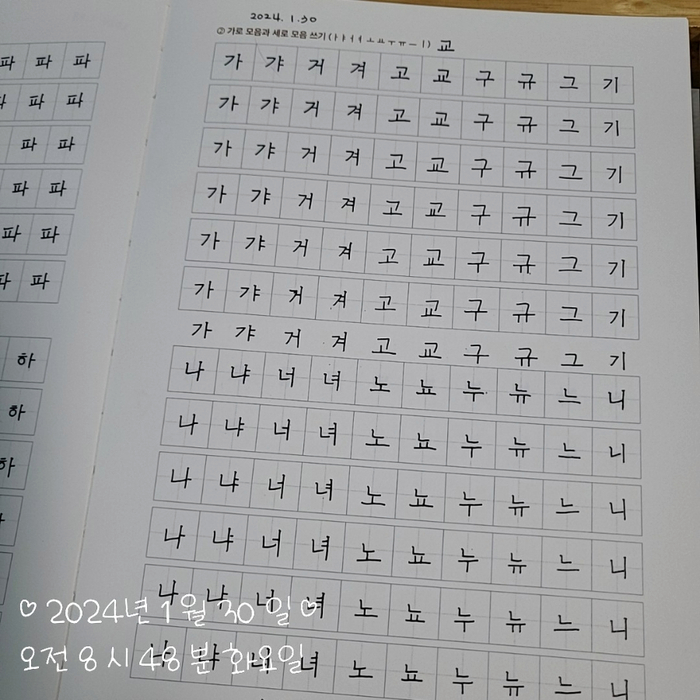 파 파 파
파 파
파 파
파 파
파 파
파
하
하
하
2024. 1. 30
② 가로 모음과 세로 모음 쓰기(ㅏㅑㅓㅕㅗㅛㅜㅠㅡㅣ) 교
가 갸 거 겨 고 교 구 규 그 기
가 갸 거 겨 고 교 구 규 그 기
가 갸 거 겨 고 교 구 규 그 기
가 갸 거 겨 고 교 구 규 그 기
가 갸 거 겨 고 교 구 규 그 기
가 갸 거 겨 고 교 구 규 그 기
가 갸 거 겨 고 교 구 규 그 기
나 냐 너 녀 노 뇨 누 뉴 느 니
나 냐 너 녀 노 뇨 누 뉴 느 니
나 냐 너 녀 노 뇨 누 뉴 느 니
나 냐 너 녀 노 뇨 누 뉴 느 니
나 냐 너 녀 노 뇨 누 뉴 느 니
나 냐 너 녀 노 뇨 누 뉴 느 니
♡2024년 1월 30일♡
오전 8시 48분 화요일